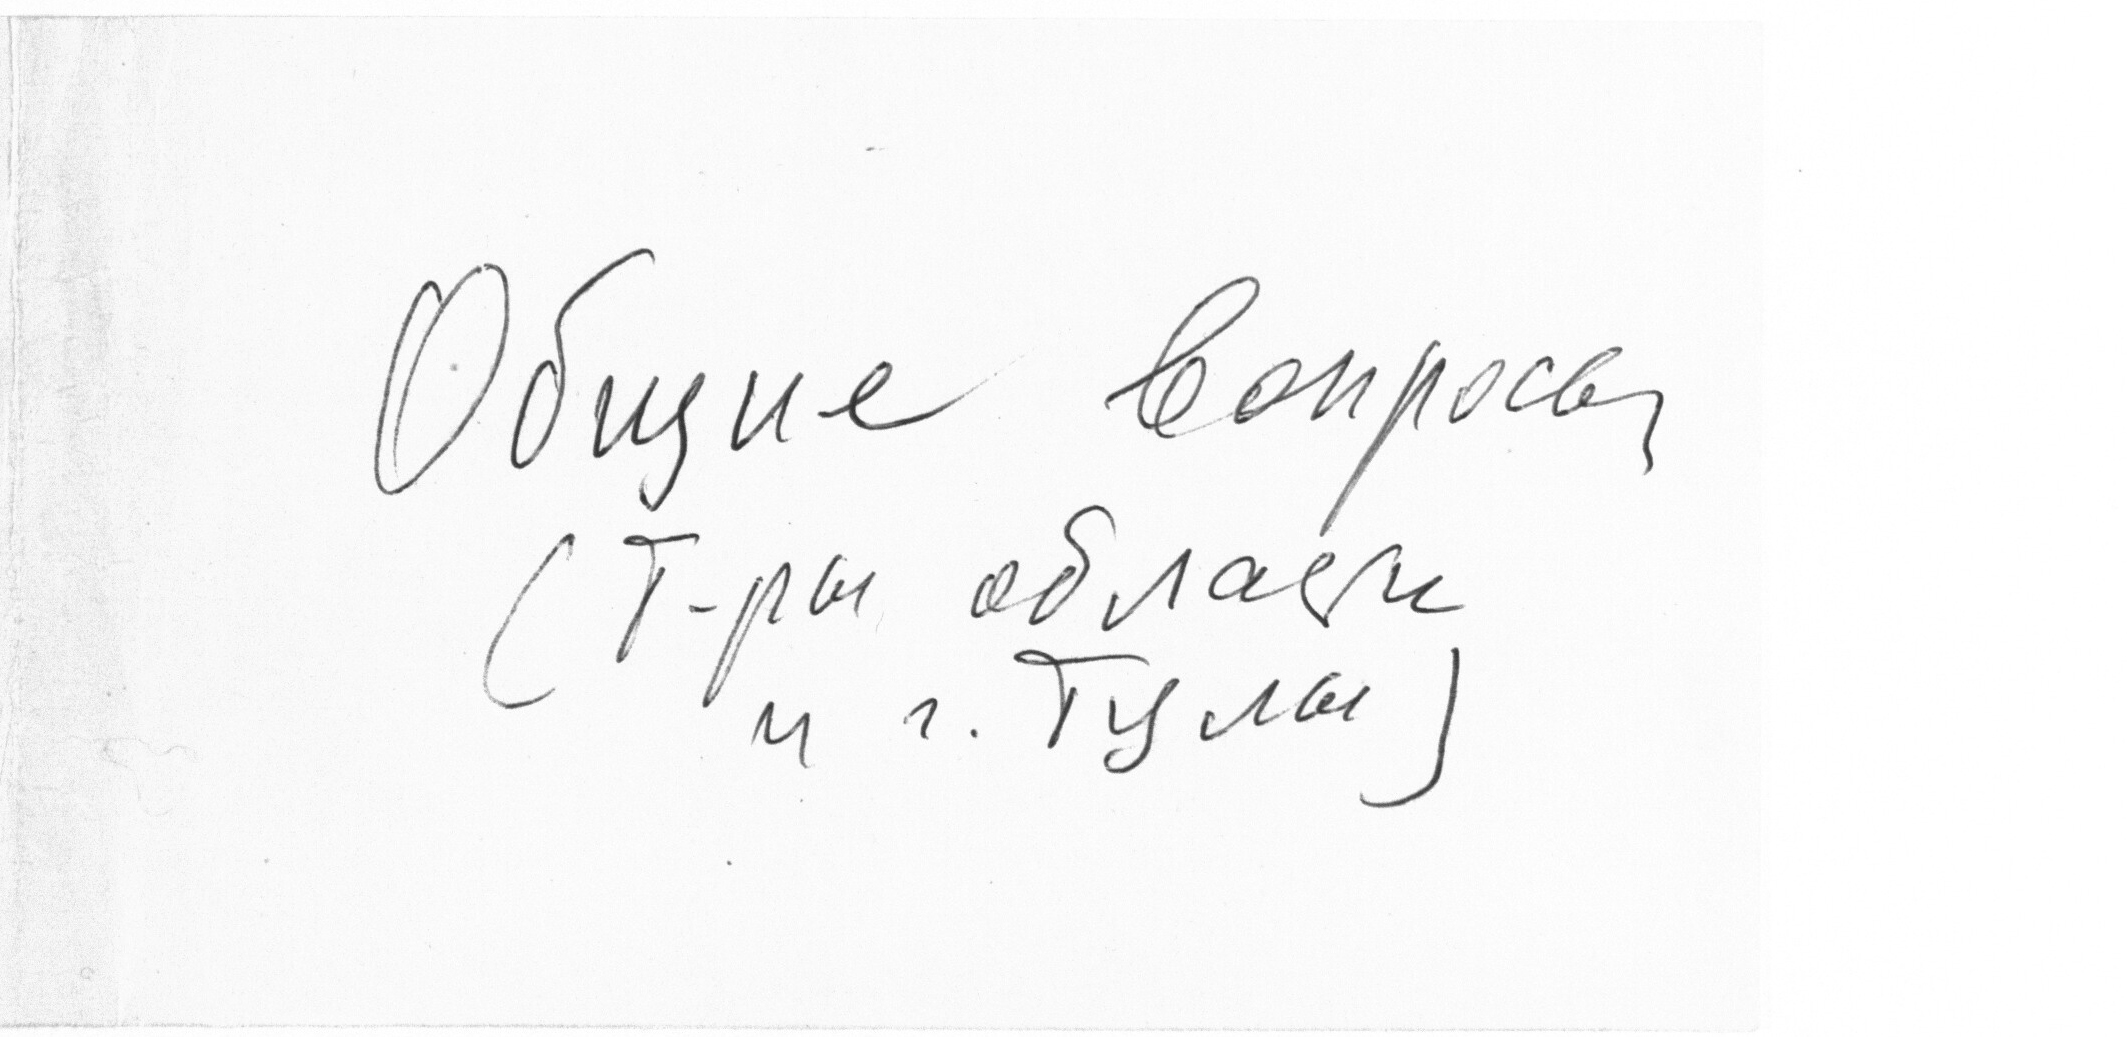 Общие вопросы
(Т-ры области
и г. Тулы)